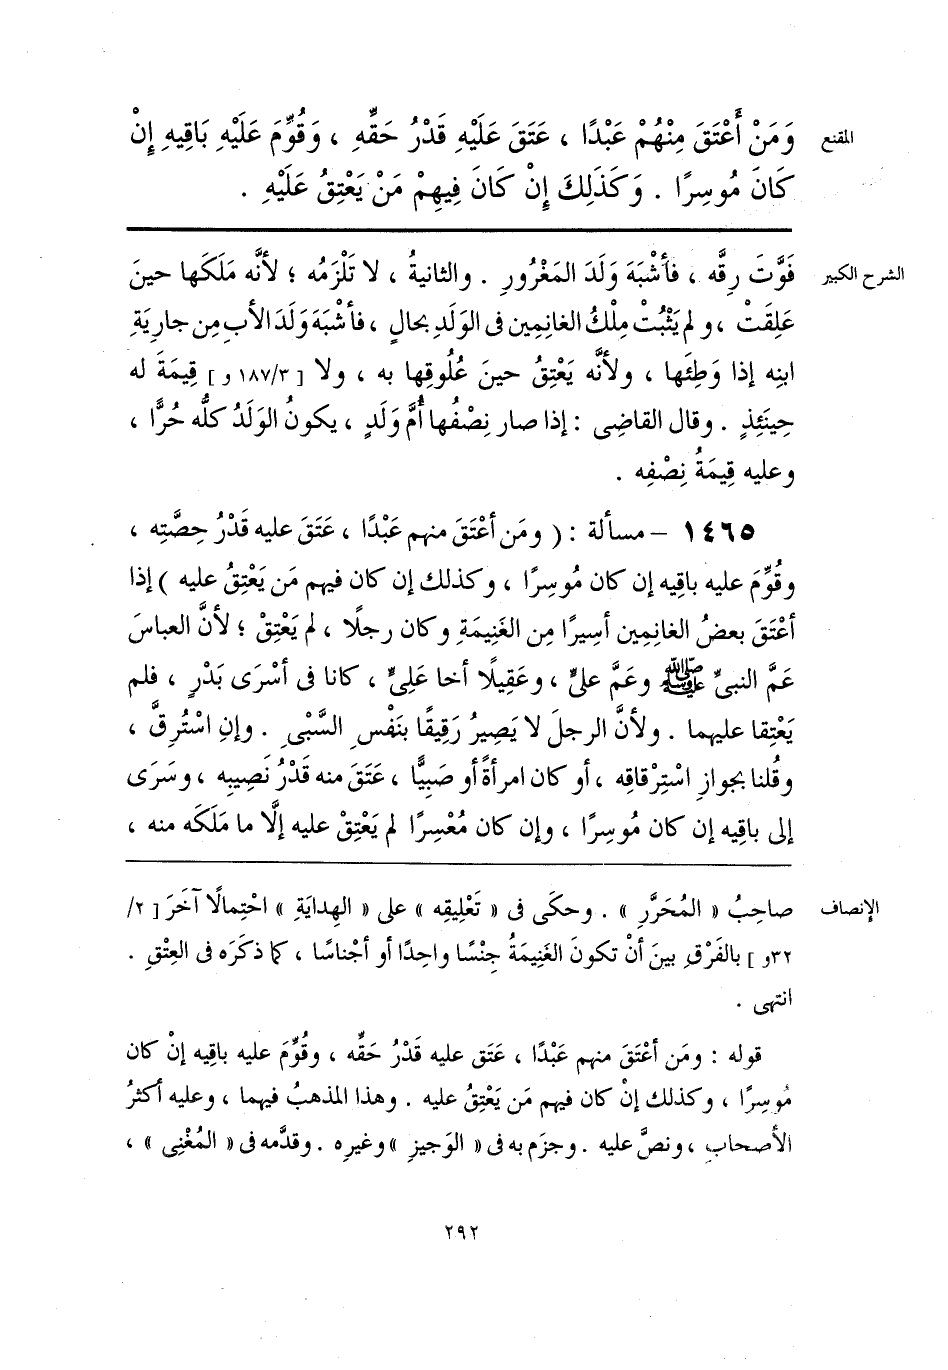 المقنع وَمَنْ أَعْتَقَ مِنْهُمْ عَبْدًا ، عَتَقَ عَلَيْهِ قَدْرُ حَقِّهِ ، وَقُوِّمَ عَلَيْهِ بَاقِيهِ إِنْ
كَانَ مُوسِرًا . وَكَذَلِكَ إِنْ كَانَ فِيهِمْ مَنْ يَعْتِقُ عَلَيْهِ .
الشرح الكبير فَوَّتَ رِقَّه ، فأشْبَهَ وَلَدَ المَغْرُورِ . والثانيةُ ، لا تَلْزَمُه ؛ لأنَّه مَلَكَها حينَ
عَلِقَتْ ، ولم يَثْبُتْ مِلْكُ الغانِمِين فى الوَلَدِ بحالٍ ، فأشْبَهَ وَلَدَ الأبِ مِن جارِيَةِ
ابنِه إذا وَطِئَها ، ولأنَّه يَعْتِقُ حينَ عُلُوقِها به ، ولا [ ١٨٧/٣ و ] قِيمَةَ له
حِينَئِذٍ . وقال القاضِى : إذا صار نِصْفُها أُمَّ وَلَدٍ ، يكونُ الوَلَدُ كلُّه حُرًّا ،
وعليه قِيمَةُ نِصْفِه .
١٤٦٥ – مسألة : ( ومَن أعْتَقَ منهم عَبْدًا ، عَتَقَ عليه قَدْرُ حِصَّتِه ،
وقُوِّمَ عليه باقِيه إن كان مُوسِرًا ، وكذلك إن كان فيهم مَن يَعْتِقُ عليه ) إذا
أعْتَقَ بعضُ الغانِمِين أسِيرًا مِن الغَنِيمَةِ وكان رجلًا ، لم يَعْتِقْ ؛ لأنَّ العباسَ
عَمَّ النبىِّ ﷺ وعَمَّ علىٍّ ، وعَقِيلًا أخا عَلِىٍّ ، كانا فى أسْرَى بَدْرٍ ، فلم
يَعْتِقا عليهما . ولأنَّ الرجلَ لا يَصِيرُ رَقِيقًا بنَفْسِ السَّبْىِ . وإنِ اسْتُرِقَّ ،
وقُلنا بجوازِ اسْتِرْقاقِه ، أو كان امرأةً أو صَبِيًّا ، عَتَقَ منه قَدْرُ نَصِيبِه ، وسَرَى
إلى باقِيه إن كان مُوسِرًا ، وإن كان مُعْسِرًا لم يَعْتِقْ عليه إلَّا ما مَلَكَه منه ،
الإنصاف صاحِبُ « المُحَرَّرِ » . وحكَى فى « تَعْلِيقِه » على « الهِدايَةِ » احْتِمالًا آخَرَ [ ٢/
٣٢و ] بالفَرْقِ بينَ أنْ تكونَ الغَنِيمَةُ جِنْسًا واحِدًا أو أجْناسًا ، كما ذكَرَه فى العِتْقِ .
انتهى .
قوله : ومَن أعْتَقَ منهم عَبْدًا ، عَتَق عليه قَدْرُ حَقِّه ، وقُوِّمَ عليه باقِيه إنْ كان
مُوسِرًا ، وكذلك إنْ كان فيهم مَن يَعْتِقُ عليه . وهذا المذهبُ فيهما ، وعليه أكثرُ
الأصحابِ ، ونصَّ عليه . وجزَم به فى « الوَجيزِ » وغيرِه . وقدَّمه فى « المُغْنِى » ،
٢٩٢